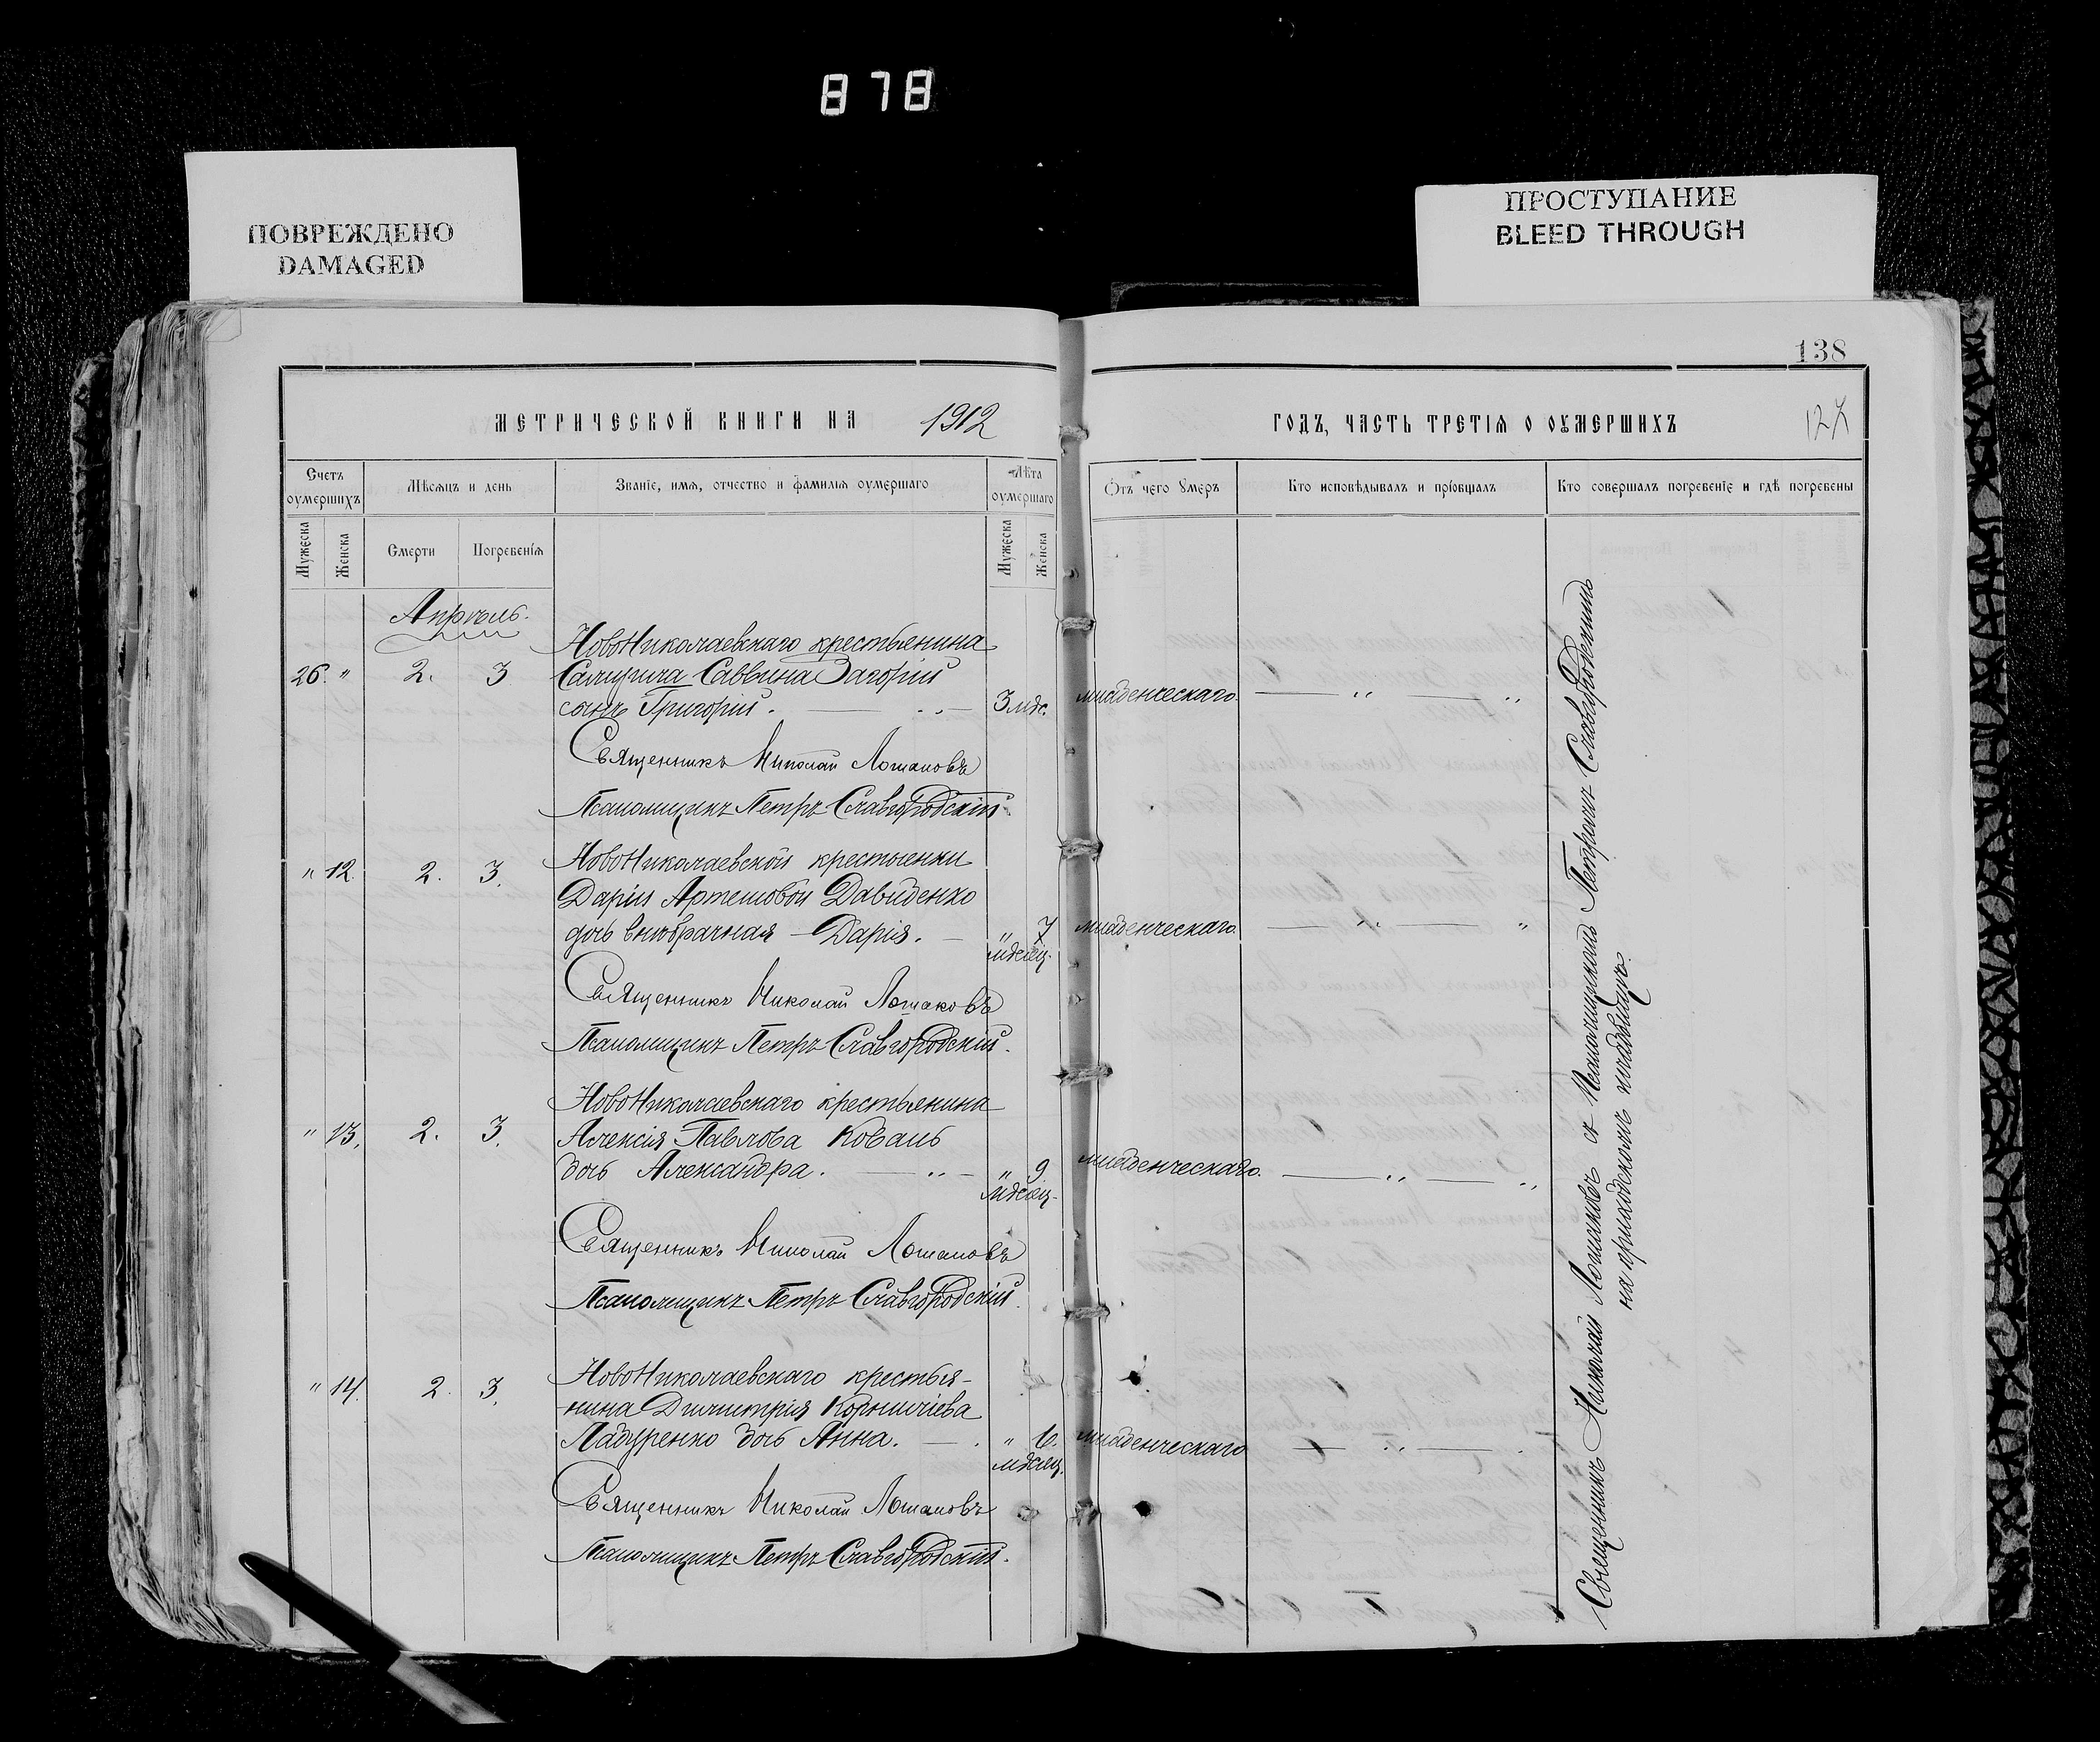 878
ПОВРЕЖДЕНО
DAMAGED
ПРОСТУПАНИЕ
BLEED THROUGH
138
МЕТРИЧЕСКОЙ КНИГИ НА 1912
ГОДЪ, ЧАСТЬ ТРЕТІЯ О ОУМЕРШИХЪ
127
Счетъ оумершихъ
Мѣсяцъ и день
Званіе, имя, отчество и фамилія оумершаго
Лѣта оумершаго
Отъ чего умеръ
Кто исповѣдывалъ и пріобщалъ
Кто совершалъ погребеніе и гдѣ погребены
Мужеска
Женска
Смерти
Погребенія
Мужеска
Женска
Апрѣль.
НовоНиколаевскаго крестьянина
26. " 2. 3 Саввина Загорій
сынъ Григорій. 3 мѣс. младенческаго. " "
Священникъ Николай Лошаковъ
Псаломщикъ Петръ Славгородскій.
НовоНиколаевской крестьянки
" 12. 2. 3. Даріи Артемовой Давиденко
дочь внѣбрачная – Дарія. " 7 младенческаго. " "
мѣсяц.
Священникъ Николай Лошаковъ
Псаломщикъ Петръ Славгородскій.
НовоНиколаевскаго крестьянина
" 13. 2. 3. Алексія Павлова Коваль
дочь Александра. " 9 младенческаго. " "
мѣсяц.
Священникъ Николай Лошаковъ
Псаломщикъ Петръ Славгородскій.
НовоНиколаевскаго крестья-
" 14. 2. 3. -нина Димитрія Корниліева
Ладуренко дочь Анна. " 6. младенческаго "
мѣсяц.
Священникъ Николай Лошаковъ
Псаломщикъ Петръ Славгородскій.
Священникъ Николай Лошаковъ съ Псаломщикомъ Петромъ Славгородскимъ
на приходскомъ кладбищѣ.